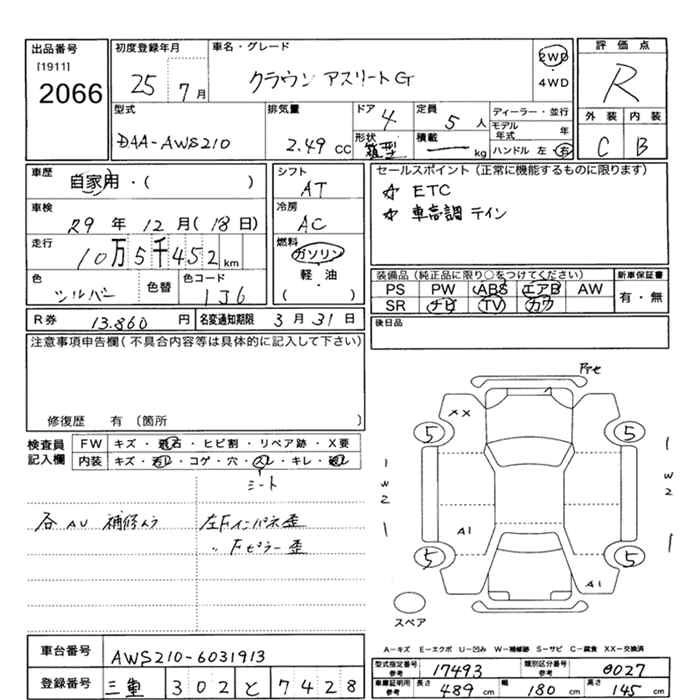 出品番号
[1911]
2066
初度登録年月
25 7月
車名・グレード
クラウン アスリートG
2WD
・
4WD
評価点
R
外装 内装
C B
型式
DAA-AWS210
排気量
2.49 cc
ドア 4
形状 箱型
定員 5 人
積載 ― kg
ディーラー・並行
モデル年式 年
ハンドル 左・右
車歴 自家用・( )
車検 29年 12月(18日)
走行 10万5千452 km
色 シルバー 色替 色コード 1J6
シフト AT
冷房 AC
燃料
ガソリン
軽・油
( )
セールスポイント(正常に機能するものに限ります)
☆ ETC
☆ 車高調 テイン
装備品(純正品に限り○をつけてください) 新車保証書
PS PW ABS エアB AW
SR ナビ TV カワ
有・無
R券 13.860 円 名変通知期限 3月31日
後日品
注意事項申告欄(不具合内容等は具体的に記入して下さい)
修復歴 有 〔箇所 〕
検査員記入欄
FW キズ・飛石・ヒビ割・リペア跡・X要
内装 キズ・汚れ・コゲ・穴・スレ・キレ・破れ
シート
各AU 補修ムラ
左Fインパネ歪
〃 Fピラー歪
XX
5 5
W2 W2
A1
5 5
A1
スペア
A-キズ E-エクボ U-凹み W-補修跡 S-サビ C-腐食 XX-交換済
車台番号 AWS210-6031913
登録番号 三重 302 と 7428
型式指定番号 参考 17493 類別区分番号 参考 0027
車庫証明用 参考 長さ 489 cm 幅 180 cm 高さ 145 cm